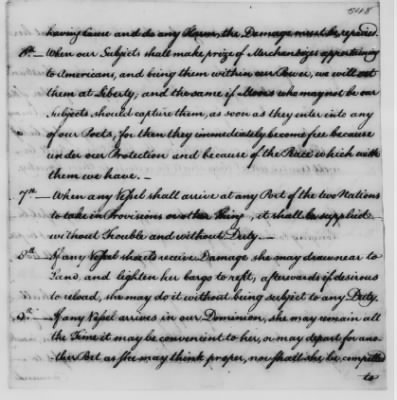 having Cause and do any Harm, the Damage must be repaired.
6th.— When our Subjects shall make prize of Merchandizes appertaining
to Americans, and being them within our Power, we will set
them at Liberty; and the same if Moors who may not be our
Subjects should capture them, as soon as they enter into any
of our Ports, for then they immediately become free because
under our Protection and because of the Peace which with
them we have.—
7th.— When any Vessel shall arrive at any Port of the two Nations
to take in Provisions or other Thing, it shall be supplied
without Trouble and without Duty.—
8th. If any Vessel shall receive Damage she may draw near to
Land, and lighten her bargo to refit, afterwards if desirous
to reload, she may do it without being subject to any Duty.
9th. If any Vessel arrives in our Dominion, she may remain all
the Time it may be convenient to her, or may depart for ano-
ther Port as she may think proper, nor shall she be compelled
to